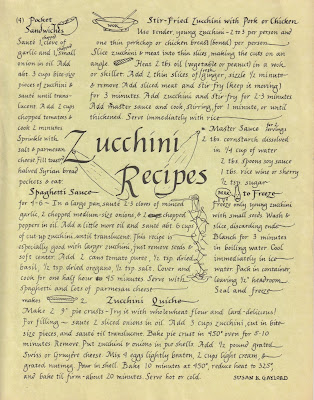 (4) Pocket Sandwiches
Sauté 1 clove of chopped
garlic and 1 small
onion in oil. Add
abt 3 cups bite-size
pieces of zucchini &
sauté until trans-
lucent. Add 2 cups
chopped tomatoes &
cook 2 minutes.
Sprinkle with
salt & parmesan
cheese. Fill two
halved Syrian bread
pockets & eat
Stir-Fried Zucchini with Pork or Chicken
WOK
Use tender, young zucchini - 2 to 3 per person and
one thin porkchop or chicken breast (boned) per person.
Slice zucchini & meat into thin slices, making the cuts on an
angle. Heat 2 tbl oil (vegetable or peanut) in a wok
or skillet. Add 2 thin slices of ginger, sizzle ½ minute
& remove. Add sliced meat and stir fry (keep it moving)
for 3 minutes. Add zucchini and stir fry for 2-3 minutes
Add master sauce and cook, stirring, for 1 minute, or until
thickened. Serve immediately with rice.
Zucchini
Recipes
Master Sauce for 2 servings
2 tbs. cornstarch dissolved
in ¼ cup of water
2 tbs spoons soy sauce
1 tbs. rice wine or sherry
½ tsp. sugar
Spaghetti Sauce
for 4-6 - In a large pan, sauté 2-3 cloves of minced
garlic, 2 chopped medium-size onions, & 2 chopped
peppers in oil. Add a little more oil and sauté abt 6 cups
of cut up zucchini until translucent. This recipe is
especially good with larger zucchini, just remove seeds &
soft center. Add 2 cans tomato puree, ½ tsp. dried
basil, ½ tsp. dried oregano, ½ tsp. salt. Cover and
cook for one half hour to 45 minutes. Serve with
spaghetti and lots of parmesan cheese
to Freeze
Freeze only young zucchini
with small seeds. Wash &
slice, discarding ends.
Blanch for 3 minutes
in boiling water. Cool
immediately in ice
water. Pack in container,
leaving ½" headroom.
Seal and freeze
makes 2
Zucchini Quiche
Make 2 9" pie crusts - try it with wholewheat flour and lard - delicious!
For filling - sauté 2 sliced onions in oil. Add 3 cups zucchini, cut in bite-
size pieces, and sauté til translucent. Bake pie crust in 450° oven for 8-10
minutes. Remove. Put zucchini & onions in pie shells. Add ½ pound grated
Swiss or Gruyère cheese. Mix 4 eggs lightly beaten, 2 cups light cream &
grated nutmeg. Pour in shell. Bake 10 minutes at 450°, reduce heat to 325°,
and bake til firm - about 20 minutes. Serve hot or cold.
SUSAN K. GAYLORD